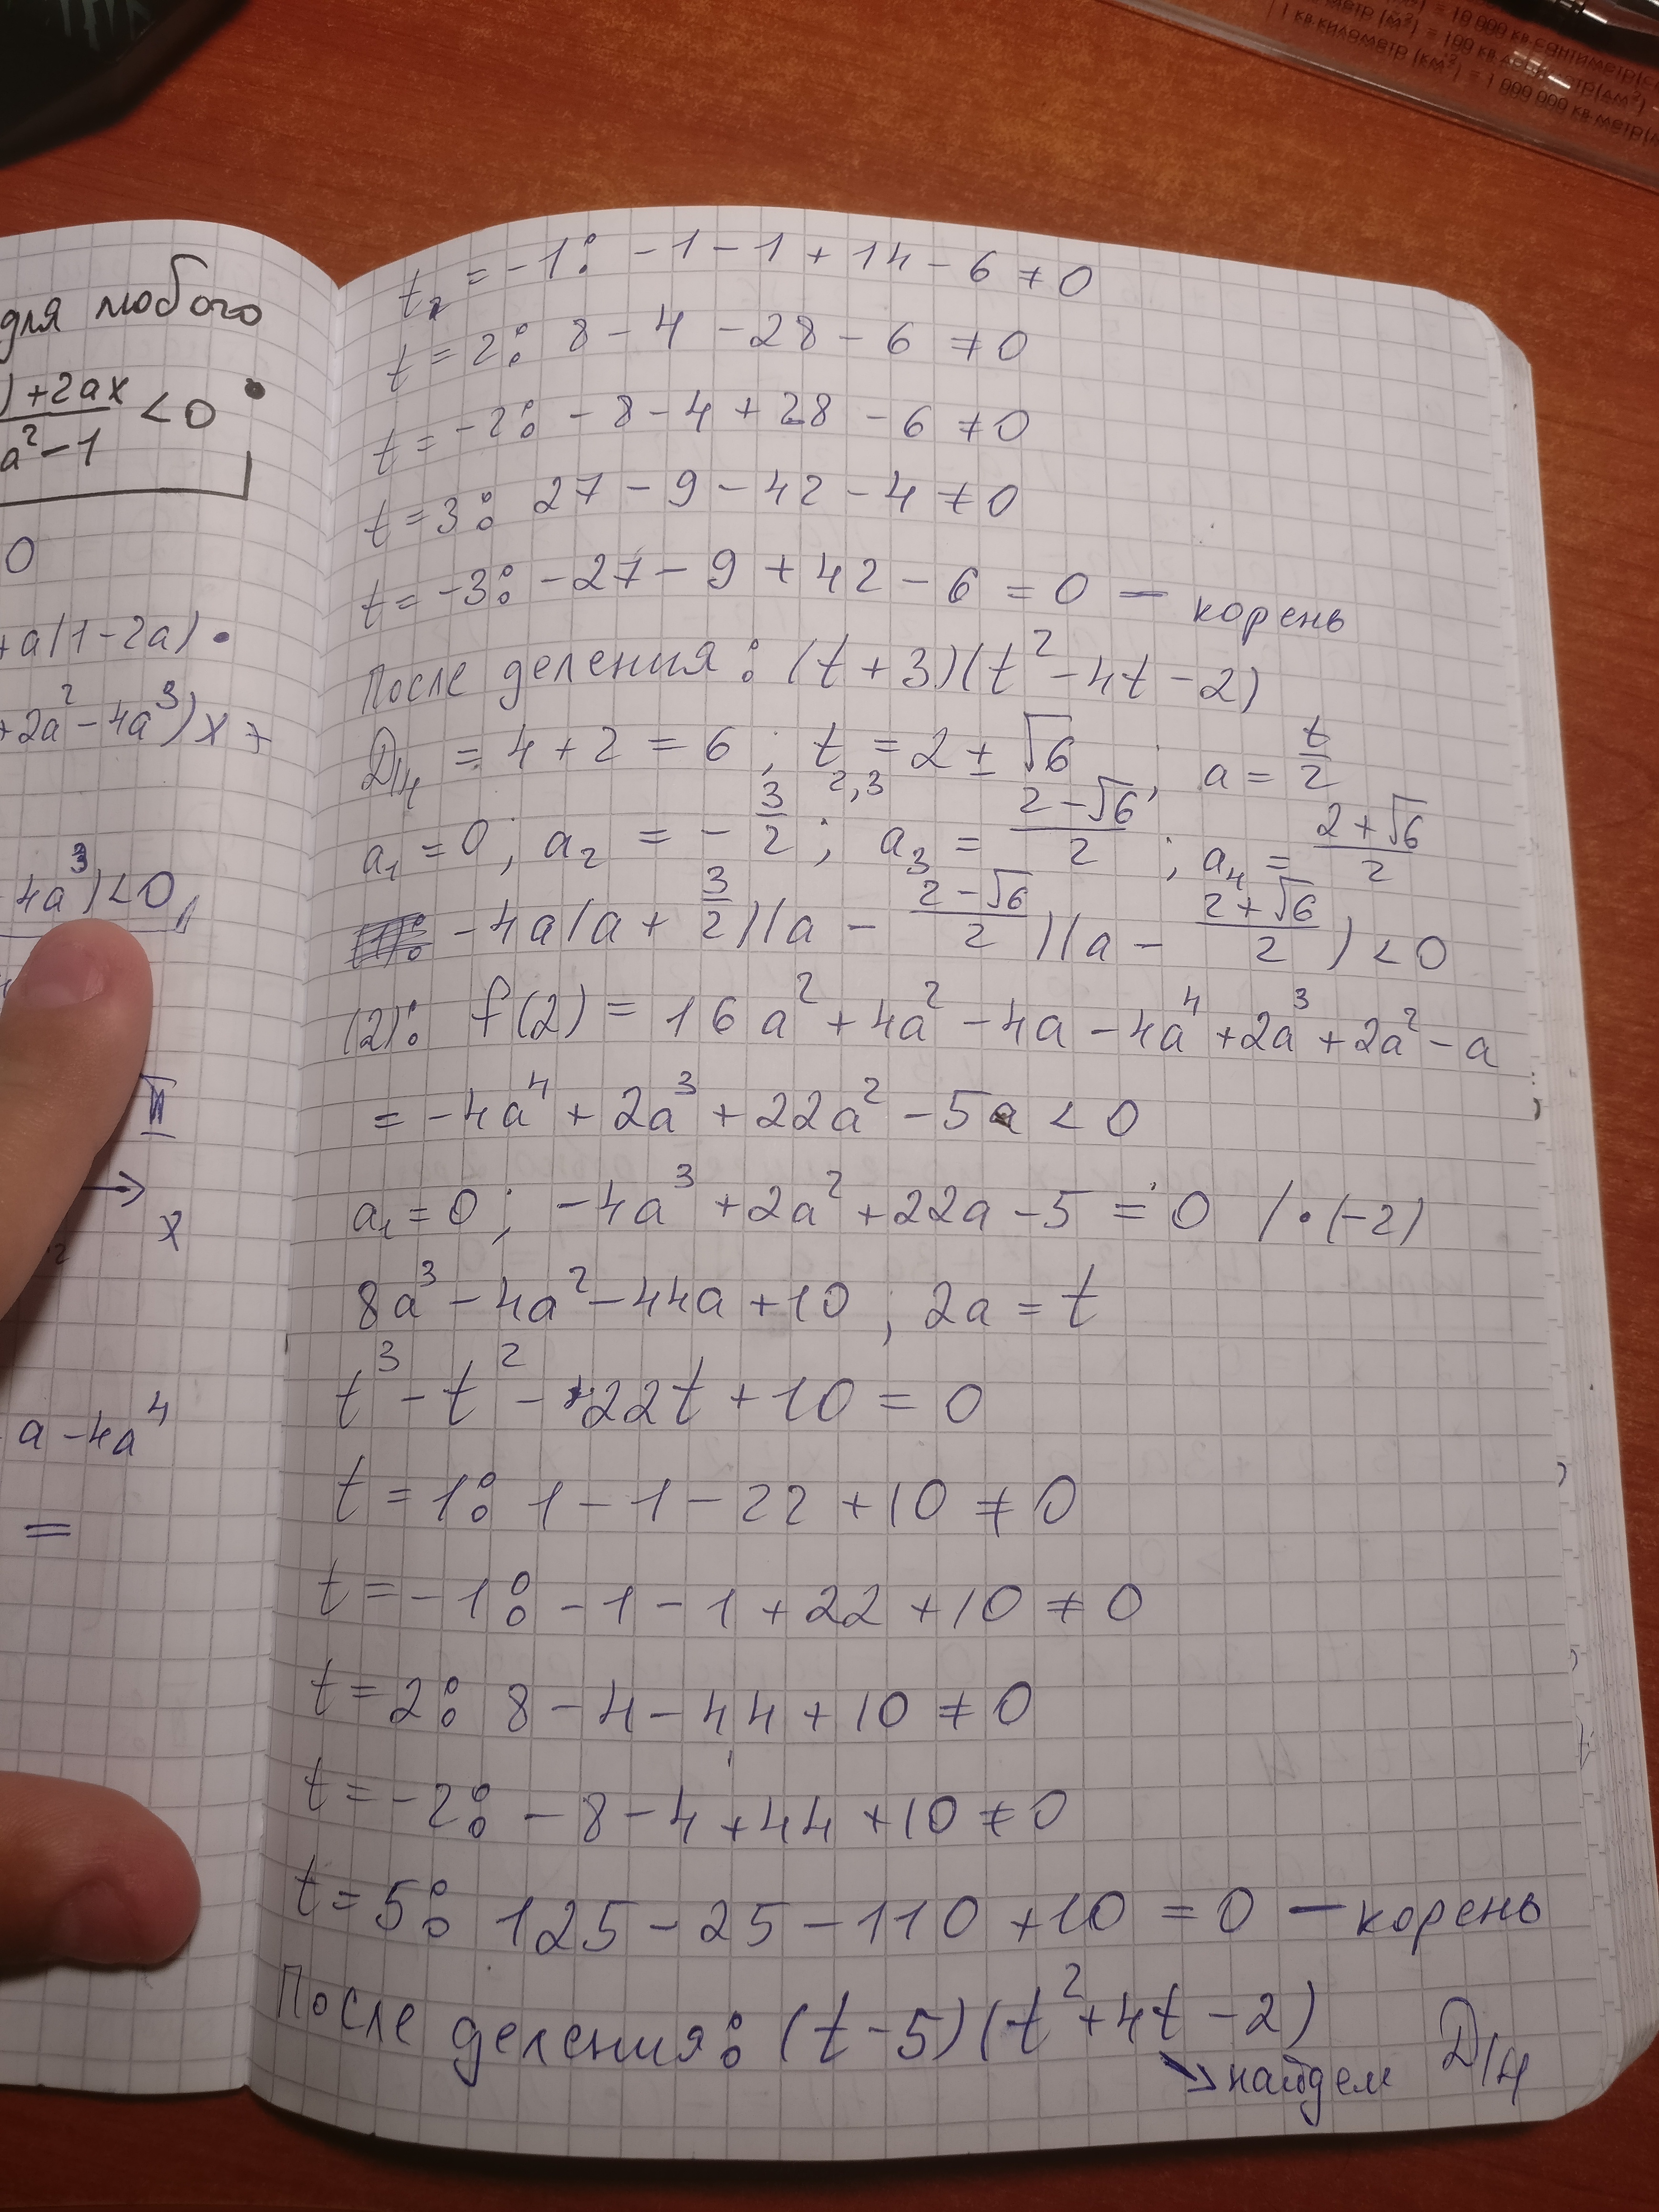 для любого
) + 2ax
a² - 1 < 0
0
+ a(1 - 2a) •
+ 2a² - 4a³) x +
4a³) < 0
II
x
a - 4a⁴
=
t₂ = -1: -1 - 1 + 14 - 6 ≠ 0
t = 2: 8 - 4 - 28 - 6 ≠ 0
t = -2: -8 - 4 + 28 - 6 ≠ 0
t = 3: 27 - 9 - 42 - 4 ≠ 0
t = -3: -27 - 9 + 42 - 6 = 0 — корень
После деления: (t + 3)(t² - 4t - 2)
D/4 = 4 + 2 = 6; t₂,₃ = 2 ± √6; a = t/2
a₁ = 0; a₂ = -3/2; a₃ = (2 - √6)/2; a₄ = (2 + √6)/2
-4a(a + 3/2)(a - (2 - √6)/2)(a - (2 + √6)/2) < 0
(2): f(2) = 16a² + 4a² - 4a - 4a⁴ + 2a³ + 2a² - a
= -4a⁴ + 2a³ + 22a² - 5a < 0
a₁ = 0; -4a³ + 2a² + 22a - 5 = 0 / • (-2)
8a³ - 4a² - 44a + 10; 2a = t
t³ - t² - 22t + 10 = 0
t = 1: 1 - 1 - 22 + 10 ≠ 0
t = -1: -1 - 1 + 22 + 10 ≠ 0
t = 2: 8 - 4 - 44 + 10 ≠ 0
t = -2: -8 - 4 + 44 + 10 ≠ 0
t = 5: 125 - 25 - 110 + 10 = 0 — корень
После деления: (t - 5)(t² + 4t - 2)
↘ найдем D/4